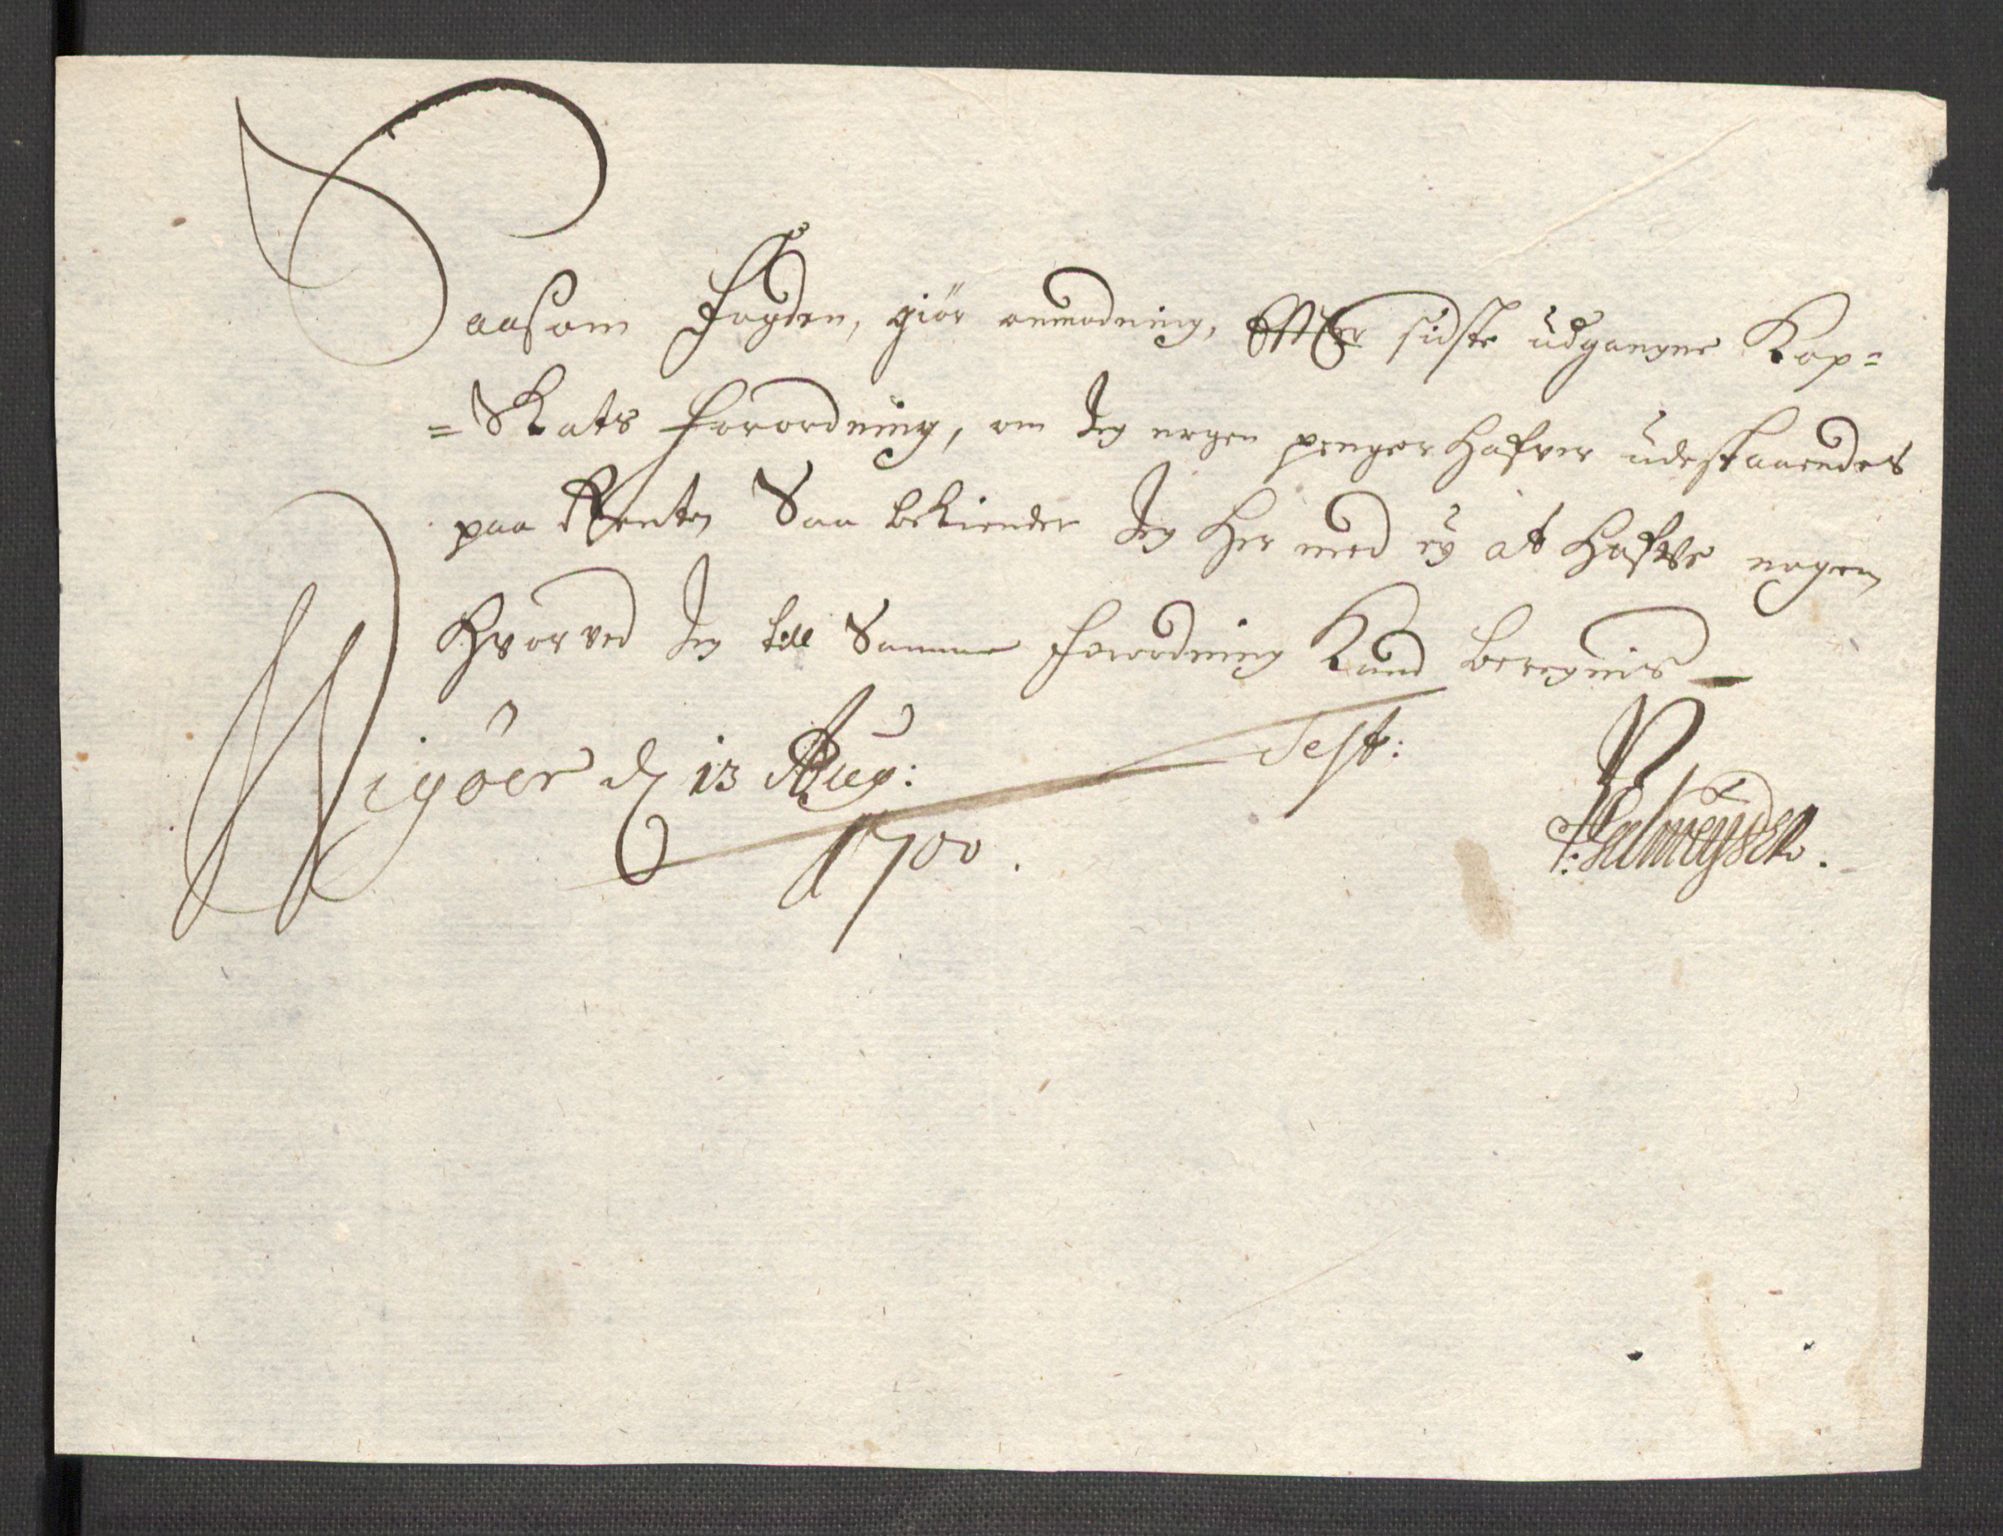 Saasom Fogden, giör anmodning, Effter sidste udgangne Kop=
=Skats forordning, om Jeg nogen penger hafver udestaaendes
paa Rente, Saa bekiender Jeg her med ey at hafve nogen
hvorved Jeg till Samme forordning Kand beregnis
d 13 Aug: Test:
1700.